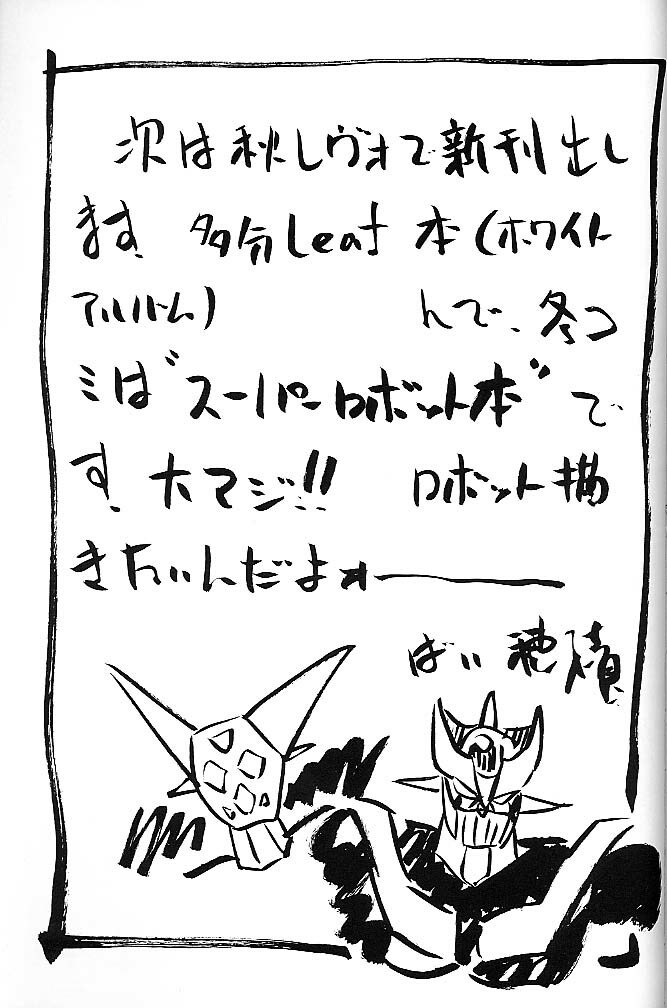 次は秋レヴォで新刊出し
ます。多分Leaf本(ホワイト
アルバム) んで、冬コ
ミは"スーパーロボット本"で
す。大マジ!! ロボット描
きたいんだよォ―――
ばい 穂積